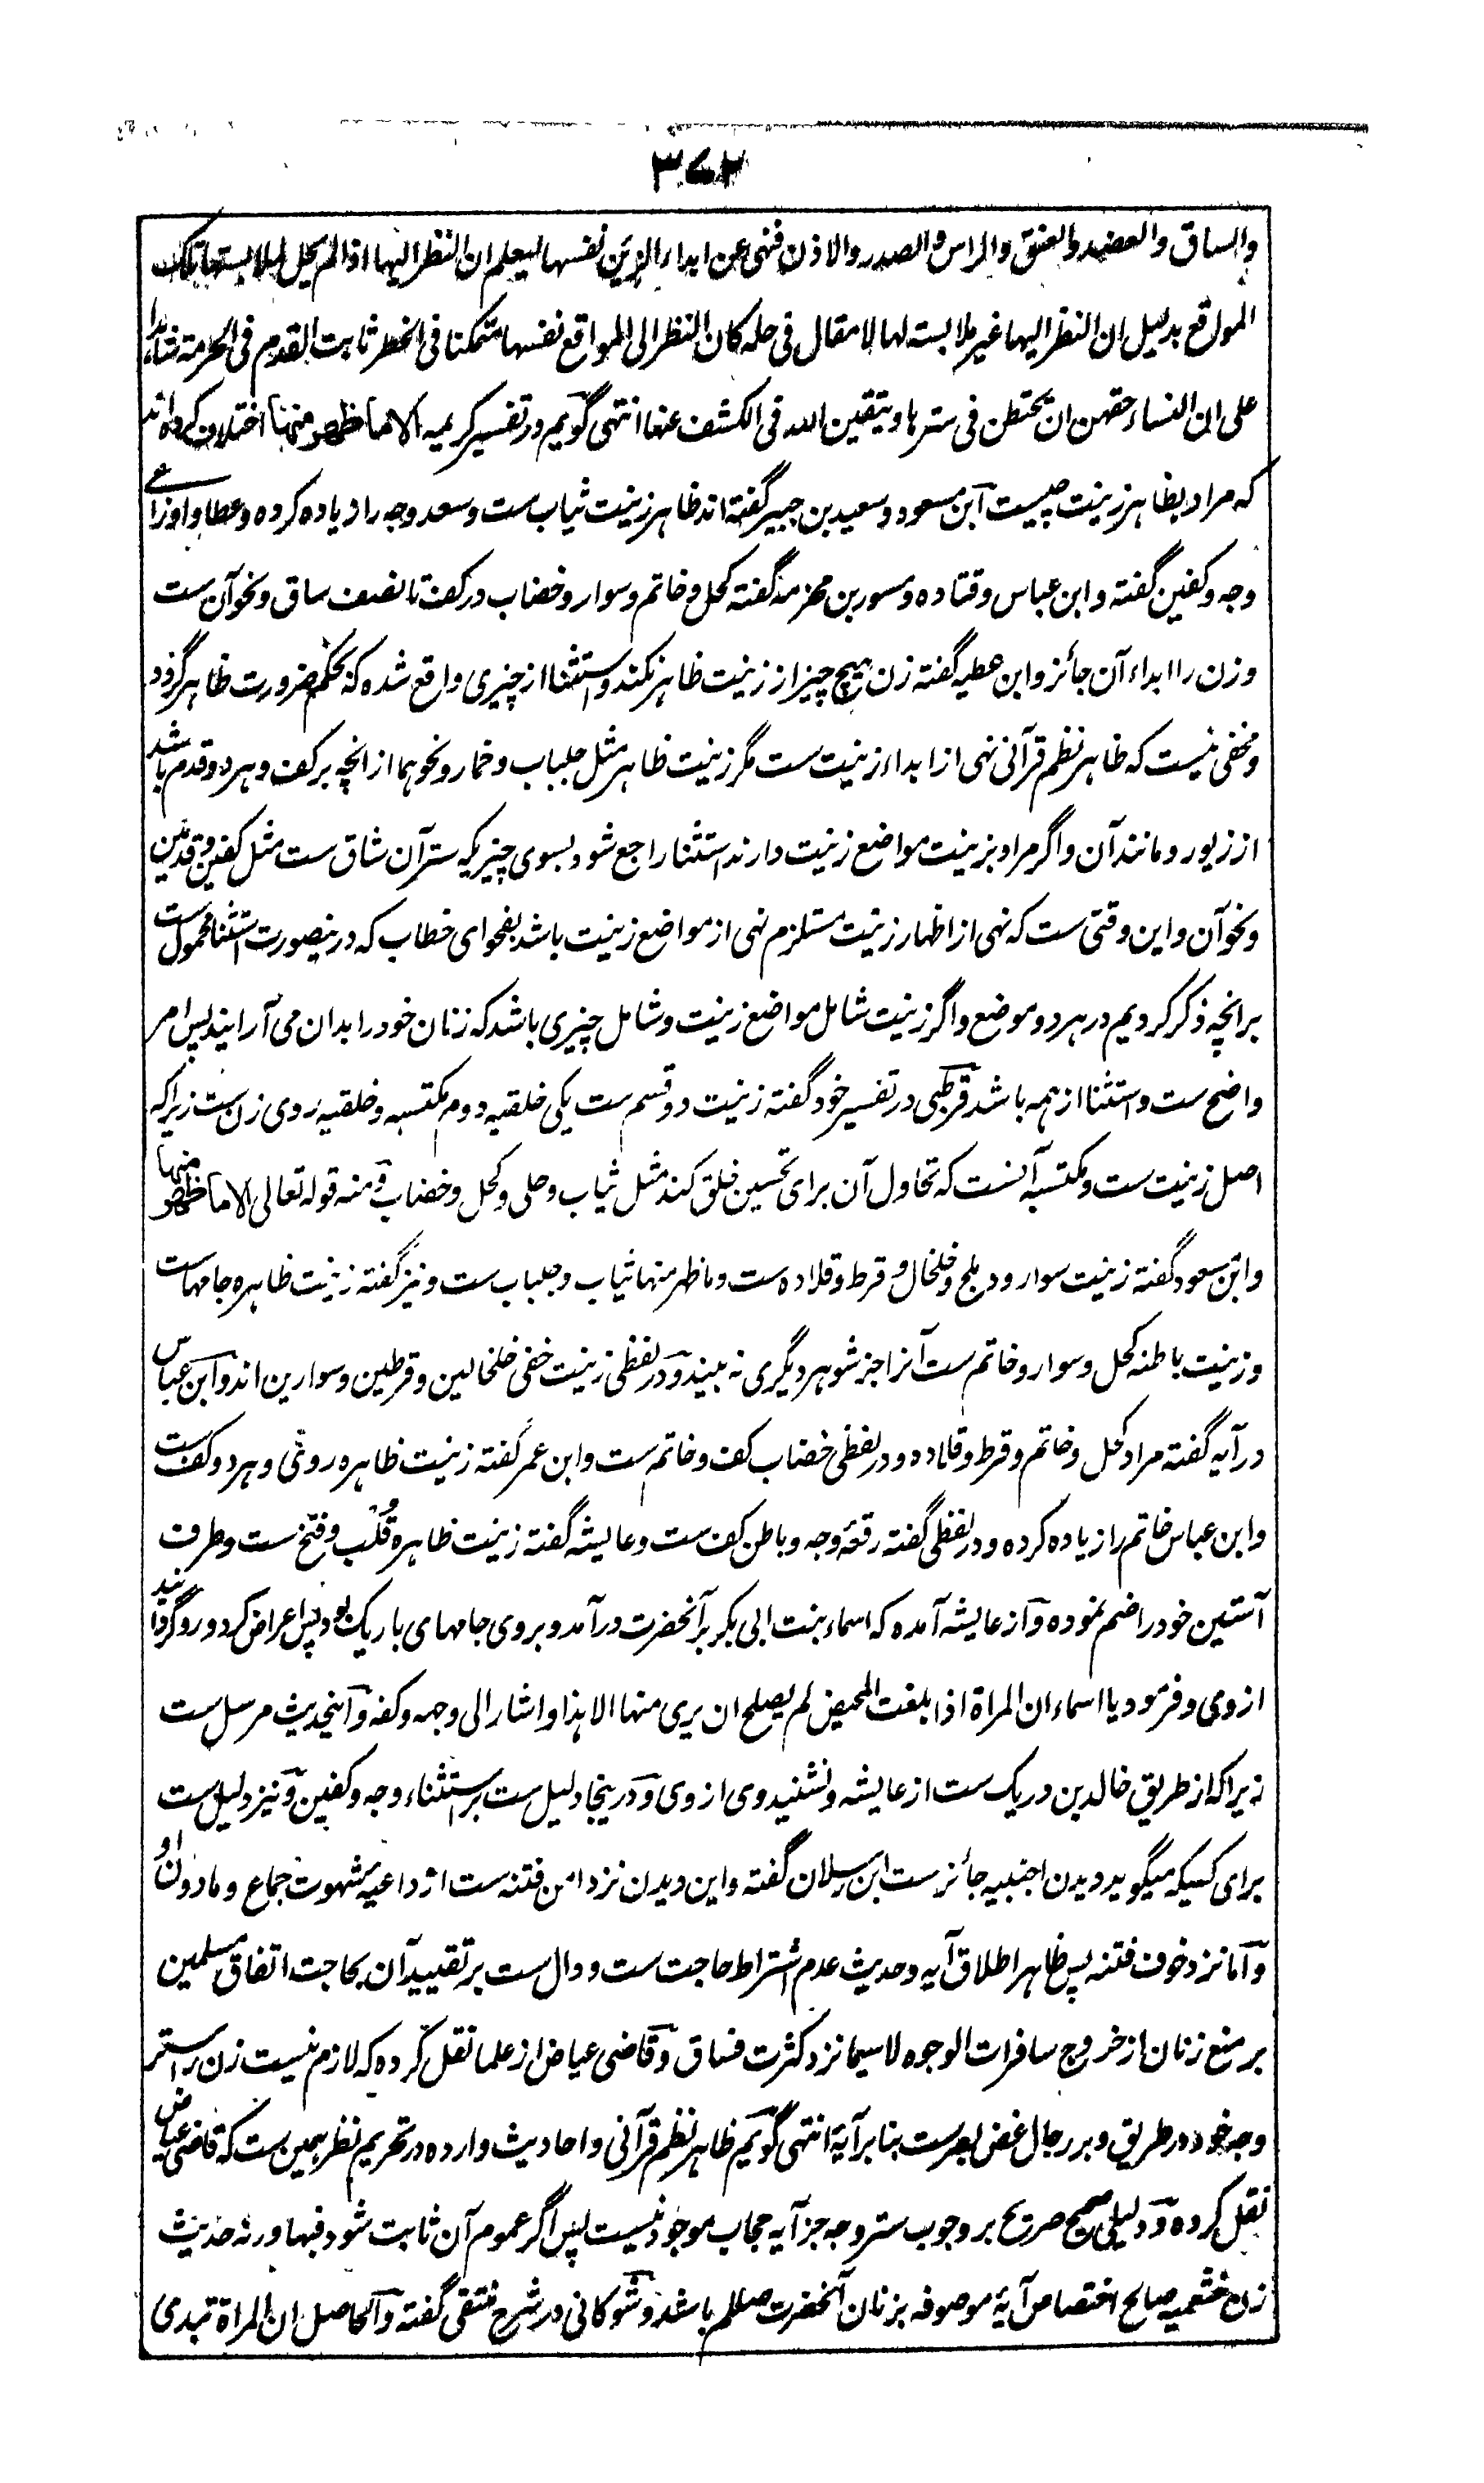 ۳۷۲
والساق والعضد والعنق والراس والصدر والاذن فنهى عن ابداء الزين نفسها ليعلم ان النظر اليها اذا لم يحل لملابستها تلك
المواقع بدليل ان النظر اليها غير ملابسة لها لا مقال فى حله كان النظر الى المواقع نفسها متمكنا فى الحظر ثابت القدم فى الحرمة شاهدا
على ان النساء حقهن ان يحتطن فى سترها ويتقين الله فى الكشف عنها انتهى گويم در تفسير كريمه الا ما ظهر منها اختلاف كرده اند
که مراد بظاهر زینت چیست ابن مسعود وسعید بن جبیر گفته اند ظاهر زینت ثیاب ست وسعد وجه را زیاده کرده وعطا واوزاعے
وجه وکفین گفته وابن عباس وقتاده ومسور بن مخرمه گفته کحل وخاتم وسوار وخضاب در کف تا نصف ساق ونحو آن ست
وزن را ابداء آن جائز وابن عطیه گفته زن هیچ چیز از زینت ظاهر نکند واستثنا از چیزی واقع شده که بحکم ضرورت ظاهر گردد
ومخفی نیست که ظاهر نظم قرآنی نهی از ابداء زینت ست مگر زینت ظاهر مثل جلباب وخمار ونحوهما از انچه بر کف وهر دو قدم باشد
از زیور ومانند آن واگر مراد بزینت مواضع زینت دارند استثنا راجع شود بسوی چیزیکه ستر آن شاق ست مثل کفین وقدمین
ونحو آن واین وقتی ست که نهی از اظهار زینت مستلزم نهی از مواضع زینت باشد بفحوای خطاب که درینصورت استثنا محمول ست
برانچه ذکر کردیم در هر دو موضع واگر زینت شامل مواضع زینت وشامل چیزی باشد که زنان خود را بدان می آرایند پس امر
واضح ست واستثنا از همه باشد قرطبی در تفسیر خود گفته زینت دو قسم ست یکی خلقیه دوم مکتسبه وخلقیه روی زن ست زیراکه
اصل زینت ست ومکتسبه آنست که تحاول آن برای تحسین خلق کند مثل ثیاب وحلی وکحل وخضاب ومنه قوله تعالی الا ما ظهر منها
وابن مسعود گفته زینت سوار ودملج وخلخال وقرط وقلاده ست وما ظهر منها ثیاب وجلباب ست ونیز گفته زینت ظاهره جامهاست
وزینت باطنه کحل وسوار وخاتم ست آنرا جز شوهر دیگری نه بیند ودر لفظی زینت خفی خلخالین وقرطین وسوارین اند وابن عباس
در آیه گفته مراد کحل وخاتم وقرط وقلاده ودر لفظی خضاب کف وخاتم ست وابن عمر گفته زینت ظاهره روئی وهر دو کف ست
وابن عباس خاتم را زیاده کرده ودر لفظی گفته رقعۀ وجه وباطن کف ست وعایشه گفته زینت ظاهره قُلْب وفتخ ست وطرف
آستین خود را ضم نموده واز عایشه آمده که اسماء بنت ابی بکر بر آنحضرت درآمد وبروی جامهای باریک بود پس اعراض کرد ورو گردانید
از وی وفرمود یا اسماء ان المراة اذا بلغت المحیض لم یصلح ان یری منها الا هذا واشار الی وجهه وکفه واینحدیث مرسل ست
زیراکه از طریق خالد بن دریک ست از عایشه ونشنید وی از وی ودرینجا دلیل ست بر استثناء وجه وکفین ونیز دلیل ست
برای کسیکه میگوید دیدن اجنبیه جائز ست ابن رسلان گفته واین دیدن نزد امن فتنه ست از داعیۀ شهوت جماع وما دون او
واما نزد خوف فتنه پس ظاهر اطلاق آیه وحدیث عدم اشتراط حاجت ست ودال ست بر تقیید آن بحاجت اتفاق مسلمین
بر منع زنان از خروج سافرات الوجوه لاسیما نزد کثرت فساق وقاضی عیاض از علما نقل کرده که لازم نیست زن را ستر
وجه خود در طریق وبر رجال غض بصر ست بنا بر آیۀ انتهی گویم ظاهر نظم قرآنی واحادیث وارده در تحریم نظر همین ست که قاضی عیاض
نقل کرده ودلیلی صحیح صریح بر وجوب ستر وجه جز آیه حجاب موجود نیست پس اگر عموم آن ثابت شود فبها ورنه حدیث
زن خثعمیه صالح اختصاص آیۀ موصوفه بزنان آنحضرت صللم باشد وشوکانی در شرح منتقی گفته والحاصل ان المراة تبدی